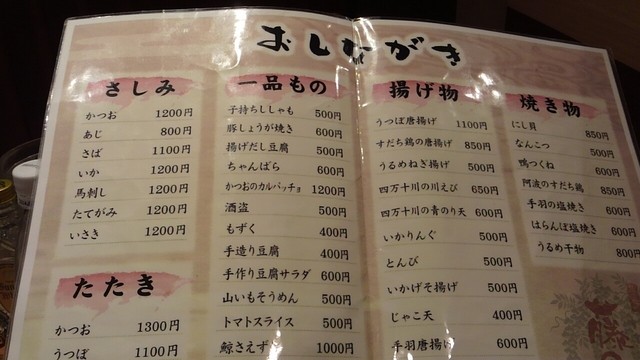 おしながき
さしみ
かつお 1200円
あじ 800円
さば 1100円
いか 1200円
馬刺し 1200円
たてがみ 1200円
いさき 1200円
たたき
かつお 1300円
うつぼ 1100円
一品もの
子持ちししゃも 500円
豚しょうが焼き 600円
揚げだし豆腐 500円
ちゃんばら 600円
かつおのカルパッチョ 1200円
酒盗 500円
もずく 400円
手造り豆腐 400円
手作り豆腐サラダ 600円
山いもそうめん 500円
トマトスライス 500円
鯨さえずり 1000円
揚げ物
うつぼ唐揚げ 1100円
すだち鶏の唐揚げ 850円
うるめねぎ揚げ 500円
四万十川の川えび 650円
四万十川の青のり天 600円
いかりんぐ 500円
とんび 500円
いかげそ揚げ 500円
じゃこ天 400円
手羽唐揚げ 600円
焼き物
にし貝 850円
なんこつ 500円
鴨つくね 600円
阿波のすだち鶏 850円
手羽の塩焼き 600円
はらんぼ塩焼き 600円
うるめ干物 800円
藤の